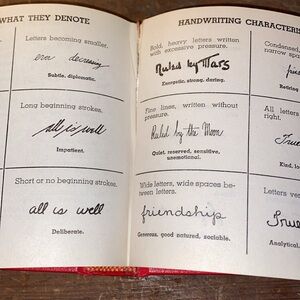 WHAT THEY DENOTE
Letters becoming smaller.
ever decreasing
Subtle, diplomatic.
Long beginning strokes.
all is well
Impatient.
Short or no beginning strokes.
all is well
Deliberate.
HANDWRITING
Bold, heavy letters written
with excessive pressure.
Ruled by Mars
Energetic, strong, daring.
Fine lines, written without
pressure.
Ruled by the Moon
Quiet, reserved, sensitive,
unemotional.
Wide letters, wide spaces be-
tween letters.
friendship
Generous, good natured, sociable.
Condensed
narrow spa
Retiring
All letters
right.
True
Kind, lo
Letters ve
True
Analytical,